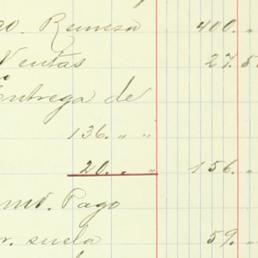 Remesa 400. " "
Ventas 27.5
Entrega de
136. " "
20. " " 156. "
Pago
suela 59. "